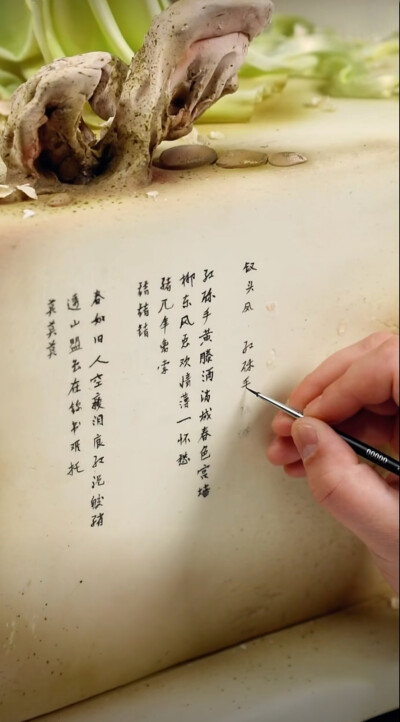 钗头凤 红酥手
红酥手黄滕酒满城春色宫墙
柳东风恶欢情薄一怀愁
绪几年离索
错错错
春如旧人空瘦泪痕红浥鲛绡
透山盟虽在锦书难托
莫莫莫
00000